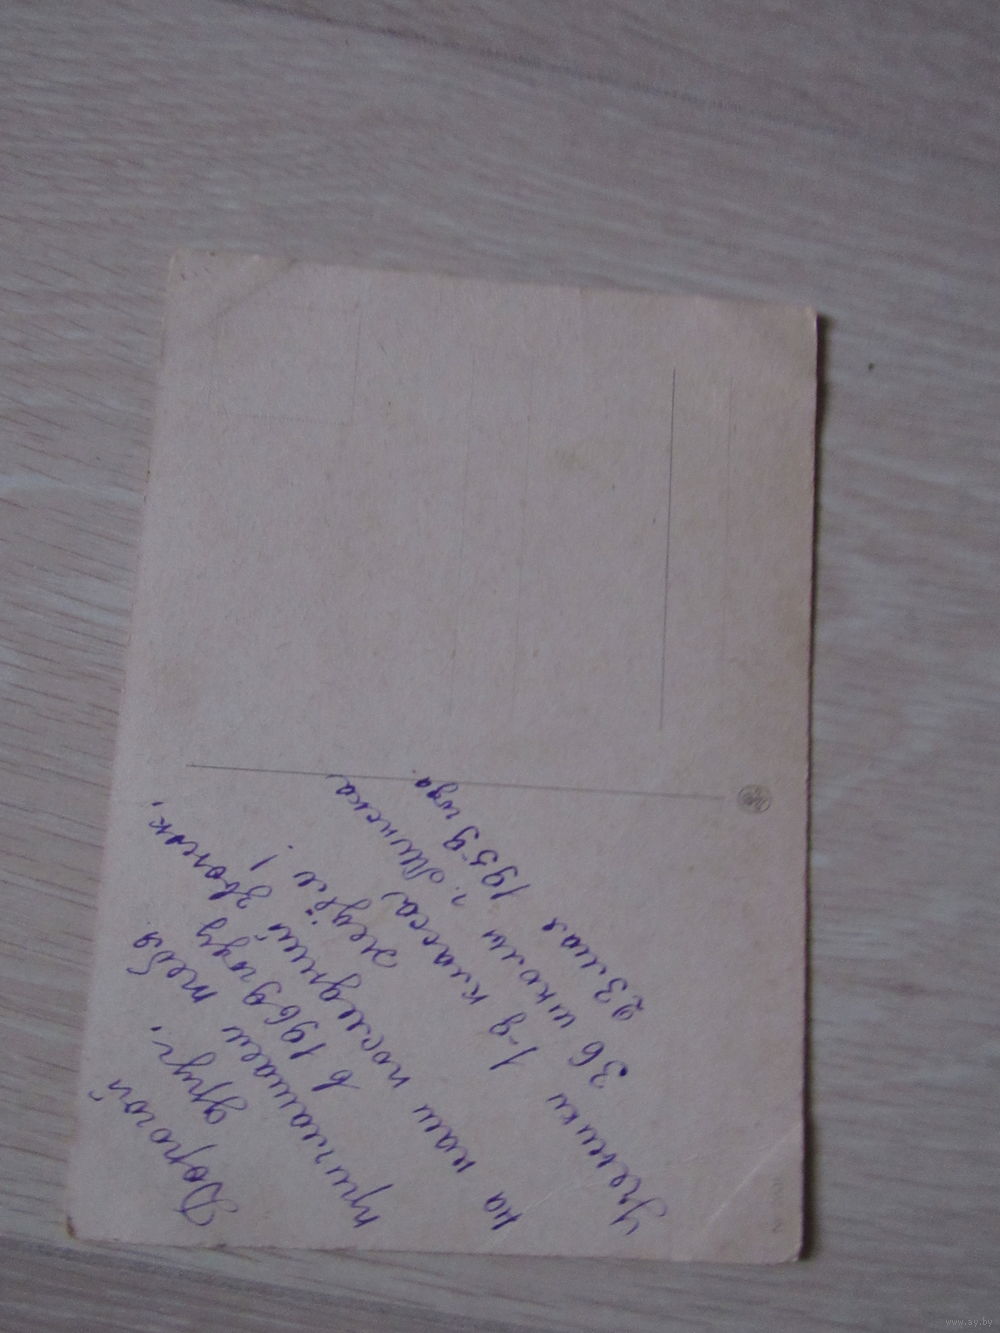 Дорогой
друг,
приглашаем тебя
в 1969 году
на наш последний звонок.
ждём!
Ученики 1-д класса
36 школы г. Минска
23 мая 1959 года.
www.ay.by